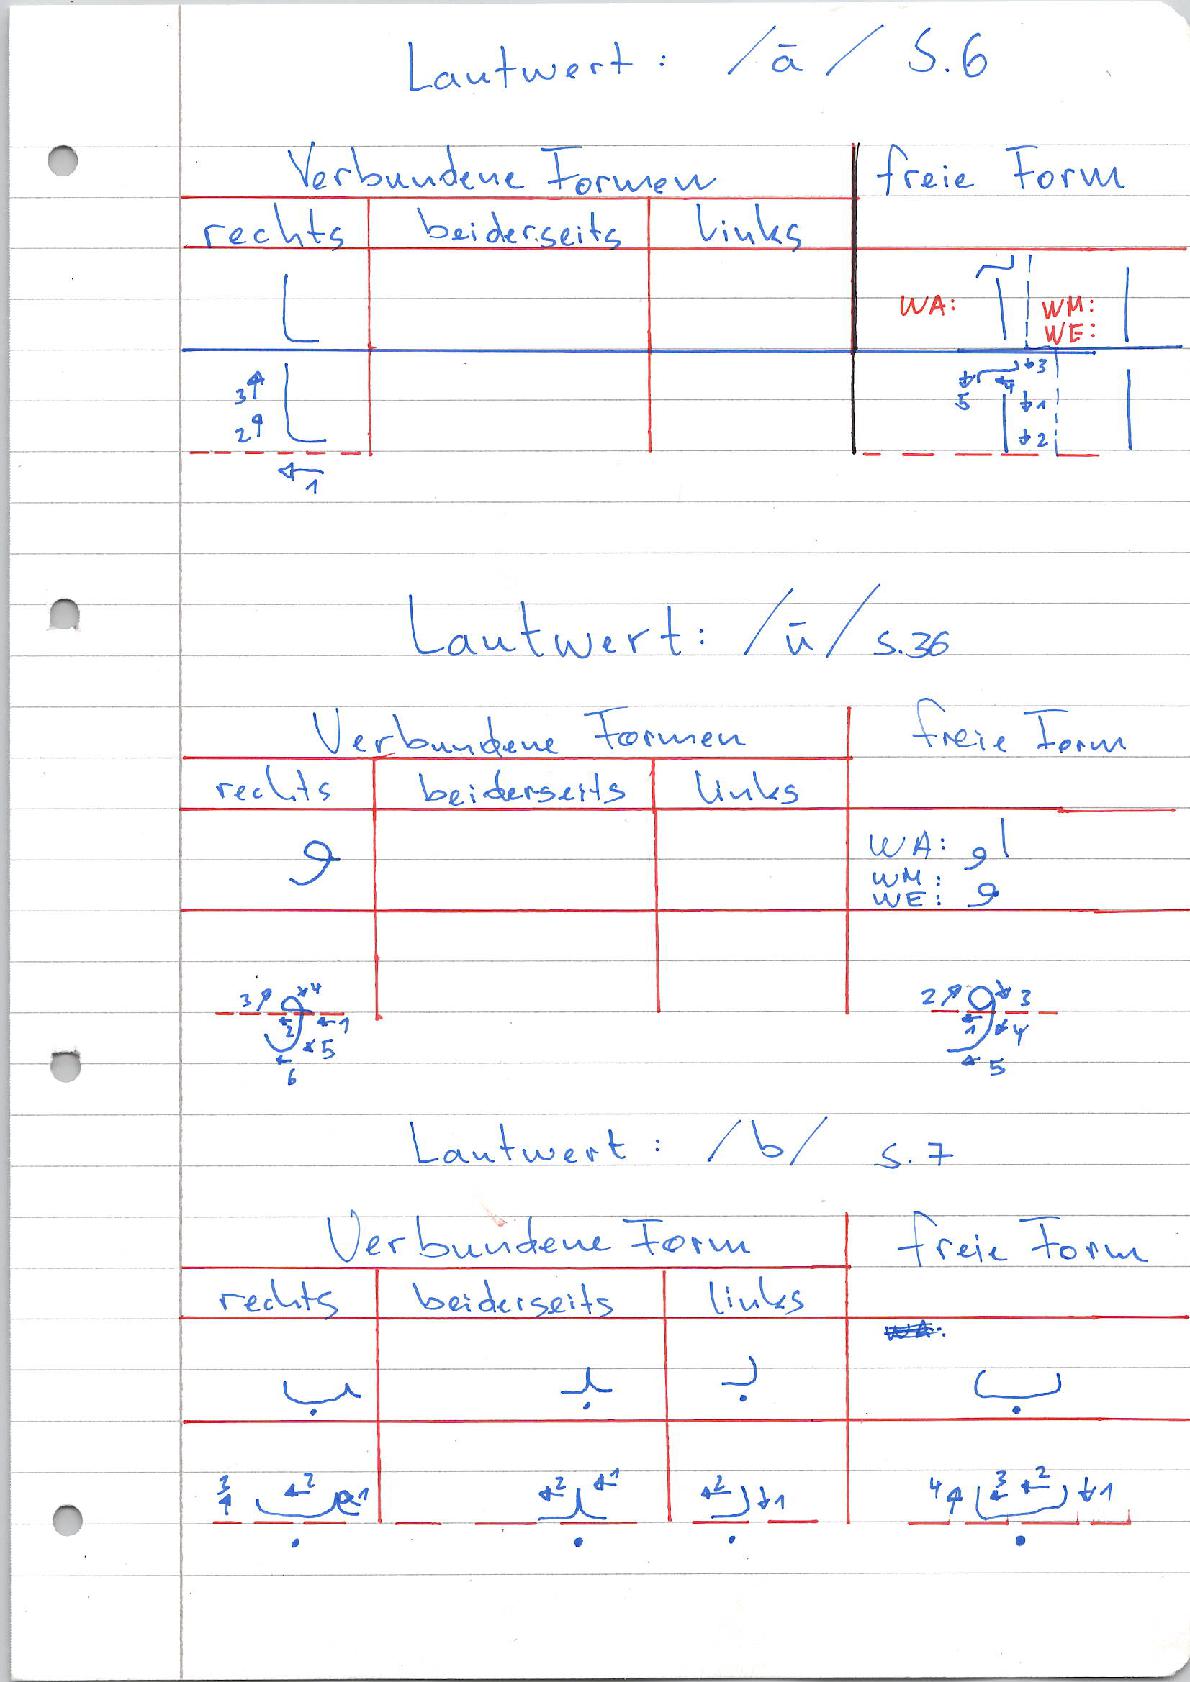 Lautwert: /ā/ S.6
Verbundene Formen freie Form
rechts beiderseits links
ـا WA: آ WM: ا
WE:
3 2 1 5 4 3 1 2
Lautwert: /ū/ S.36
Verbundene Formen freie Form
rechts beiderseits links
و WA: او
WM:
WE: و
3 4 2 1 5 6 2 3 1 4 5
Lautwert: /b/ S.7
Verbundene Form freie Form
rechts beiderseits links
WA:
ـب ـبـ بـ ب
3 2 1 2 1 2 1 4 3 2 1